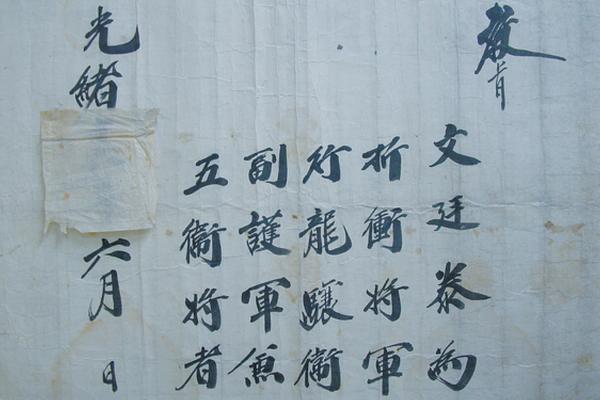 教旨
文廷泰為
折衝將軍
行龍驤衛
副護軍兼
五衛將者
光緒 六月 日